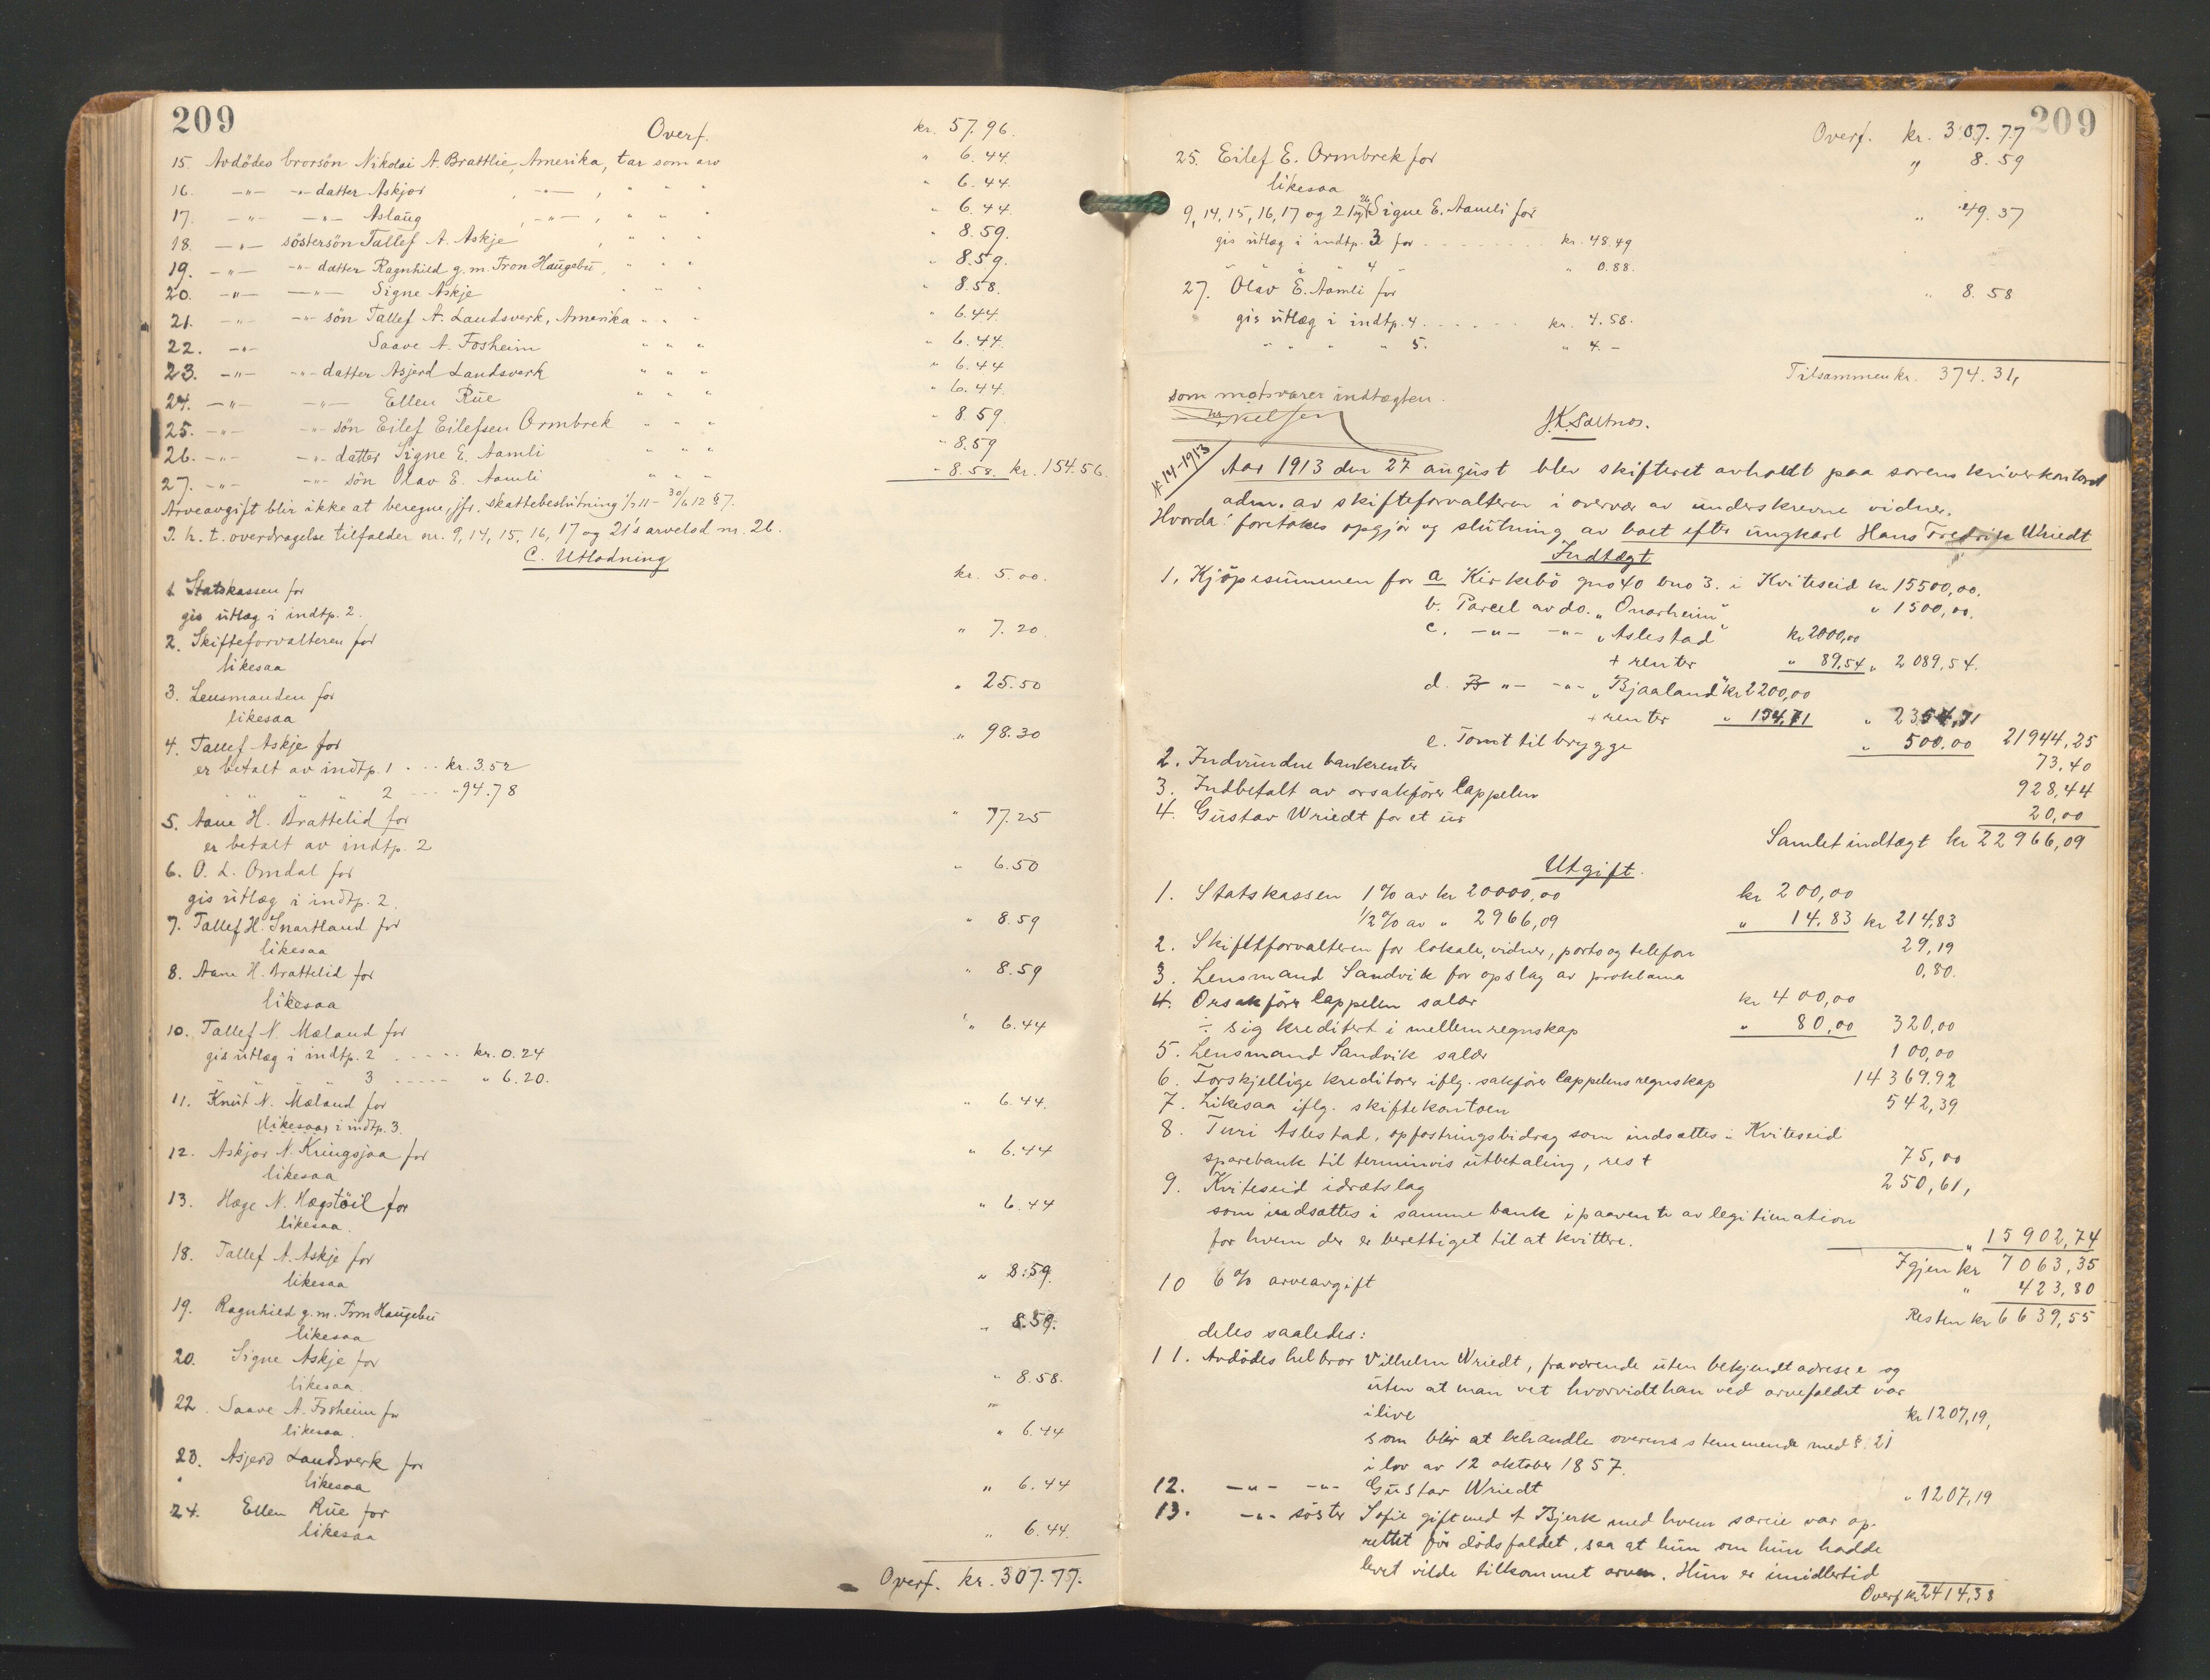 209
Overf. kr. 57.96.
15. Avdödes brorsön Nikolai A. Brattlie, Amerika, tar som arv " 6.44.
16. -"- -"- datter Askjor , -"- , " " " " 6.44.
17. -"- -"- Aslaug , -"- , " " " " 6.44.
18. -"- söstersön Tallef A. Askje , " " " " 8.59.
19. -"- -"- datter Ragnhild g. m. Tron Haugebu, " " " " 8.59.
20. -"- -"- Signe Askje " " " " 8.58.
21. -"- -"- sön Tallef A. Landsverk, Amerika " " " " 6.44.
22. -"- Saave A. Fosheim " " " " 6.44.
23. -"- -"- datter Asjerd Landsverk " " " " 6.44
24. -"- -"- Ellen Rue " " " " 6.44.
25. -"- -"- sön Eilef Eilefsen Ormbrek " " " " 8.59
26. -"- -"- datter Signe E. Aamli " " " " 8.59
27. -"- -"- sön Olav E. Aamli " " " " 8.58. kr. 154.56.
Arveavgift blir ikke at beregne, jfr. skattebeslutning 1/7 11 - 30/6 12 § 7.
I h. t. overdragelse tilfalder nr. 9, 14, 15, 16, 17 og 21's arvelod nr. 26.
C. Utlodning
1. Statskassen for kr. 5.00.
gis utlæg i indtp. 2.
2. Skifteforvalteren for " 7.20.
likesaa
3. Lensmanden for " 25.50
likesaa
4. Tallef Askje for " 98.30
er betalt av indtp. 1 . . . kr. 3.52
" " " " 2 . . . " 94.78
5. Aane H. Brattelid for " 77.25
er betalt av indtp. 2
6. O. L. Omdal for " 6.50
gis utlæg i indtp. 2.
7. Tallef H. Snartland for " 8.59
likesaa
8. Aane H. Brattelid for " 8.59
likesaa
10. Tallef N. Mæland for " 6.44
gis utlæg i indtp. 2 . . . . . kr. 0.24
" " " " 3 . . . . . " 6.20.
11. Knut N. Mæland for " 6.44.
(likesaa) i indtp. 3.
12. Askjor N. Kringsjaa for " 6.44
likesaa
13. Hæge N. Hægstöil for " 6.44
likesaa.
18. Tallef A. Askje for " 8.59.
likesaa
19. Ragnhild g. m. Tron Haugebu " 8.59.
likesaa
20. Signe Askje for " 8.58.
likesaa.
22. Saave A. Fosheim for " 6.44
likesaa.
23. Asjerd Landsverk for " 6.44
likesaa
24. Ellen Rue for " 6.44.
likesaa
Overf. kr. 307.77.
209
Overf. kr. 307.77
25. Eilef E. Ormbrek for " 8.59
likesaa
9, 14, 15, 16, 17 og 21 og 26 Signe E. Aamli for " 49.37
gis utlæg i indtp. 3 for . . . . . . . kr. 48.49
" " i " 4 " " 0.88.
27. Olav E. Aamli for " 8.58
gis utlæg i indtp. 4 . . . . . . kr. 4.58.
" " " " 5. " 4.-
Tilsammen kr. 374.31,
som motsvarer indtægten.
J. K. Saltnes.
№ 14-1913
Aar 1913 den 27 august blev skifteret avholdt paa sorenskriverkontoret
adm. av skifteforvalteren i overvær av underskrevne vidner.
Hvorda: foretokes opgjør og slutning av boet efter ungkarl Hans Fredrik Wriedt
Indtægt
1. Kjöpesummen for a Kirkebö gno 40 bno 3. i Kviteseid kr 15500,00.
b. Parcel av do. „Onarheim" " 1500,00.
c. -"- -"- „Aslestad" kr 2000,00
+ renter " 89,54 " 2089,54.
d. -"- -"- „Bjaaland" kr 2200,00
+ renter " 154,71 " 2354,71
e. Tomt til brygge " 500.00 21944,25
2. Indvundne bankrenter 73,40
3. Indbetalt av orsakförer Cappelen 928,44
4. Gustav Wriedt for et ur 20,00
Samlet indtægt kr 22966,09
Utgift.
1. Statskassen 1 % av kr 20000,00 kr 200,00
1/2 % av " 2966,09 " 14.83 kr 214,83
2. Skifteforvalteren for lokale, vidner, porto og telefon 29,19
3. Lensmand Sandvik for opslag av proklama 0,80.
4. Orsakförer Cappelen salær kr 400,00
÷ sig kreditert i mellemregnskap " 80,00 320,00
5. Lensmand Sandvik salær 100,00
6. Forskjellige kreditorer iflg. sakförer Cappelens regnskap 14369.92
7. Likesaa iflg. skiftekontoen 542,39
8. Turi Aslestad, opfostringsbidrag som indsættes i Kviteseid
sparebank til terminvis utbetaling, rest 75,00
9. Kviteseid idrætslag 250,61,
som indsættes i samme bank i paavente av legitimation
for hvem der er berettiget til at kvittere. " 15902,74
Igjen kr 7063,35
10 6 % arveavgift " 423,80
Resten kr 6639,55
deles saaledes:
11. Avdödes helbror Vilhelm Wriedt, fraværende uten bekjendt adresse og
uten at man vet hvorvidt han ved arvefaldet var
ilive kr 1207,19,
som blir at behandle overensstemmende med § 21
i lov av 12 oktober 1857.
12. -"- -"- Gustav Wriedt " 1207,19
13. -"- söster Sofie gift med A Bjerk med hvem særeie var op-
rettet för dödsfaldet, saa at hun om hun hadde
levet vilde tilkommet arven. Hun er imidlertid
Overf kr 2414,38